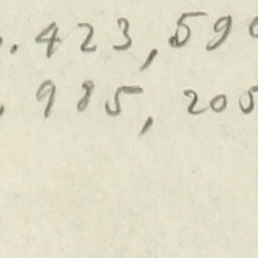 . 423,590
. 985, 205